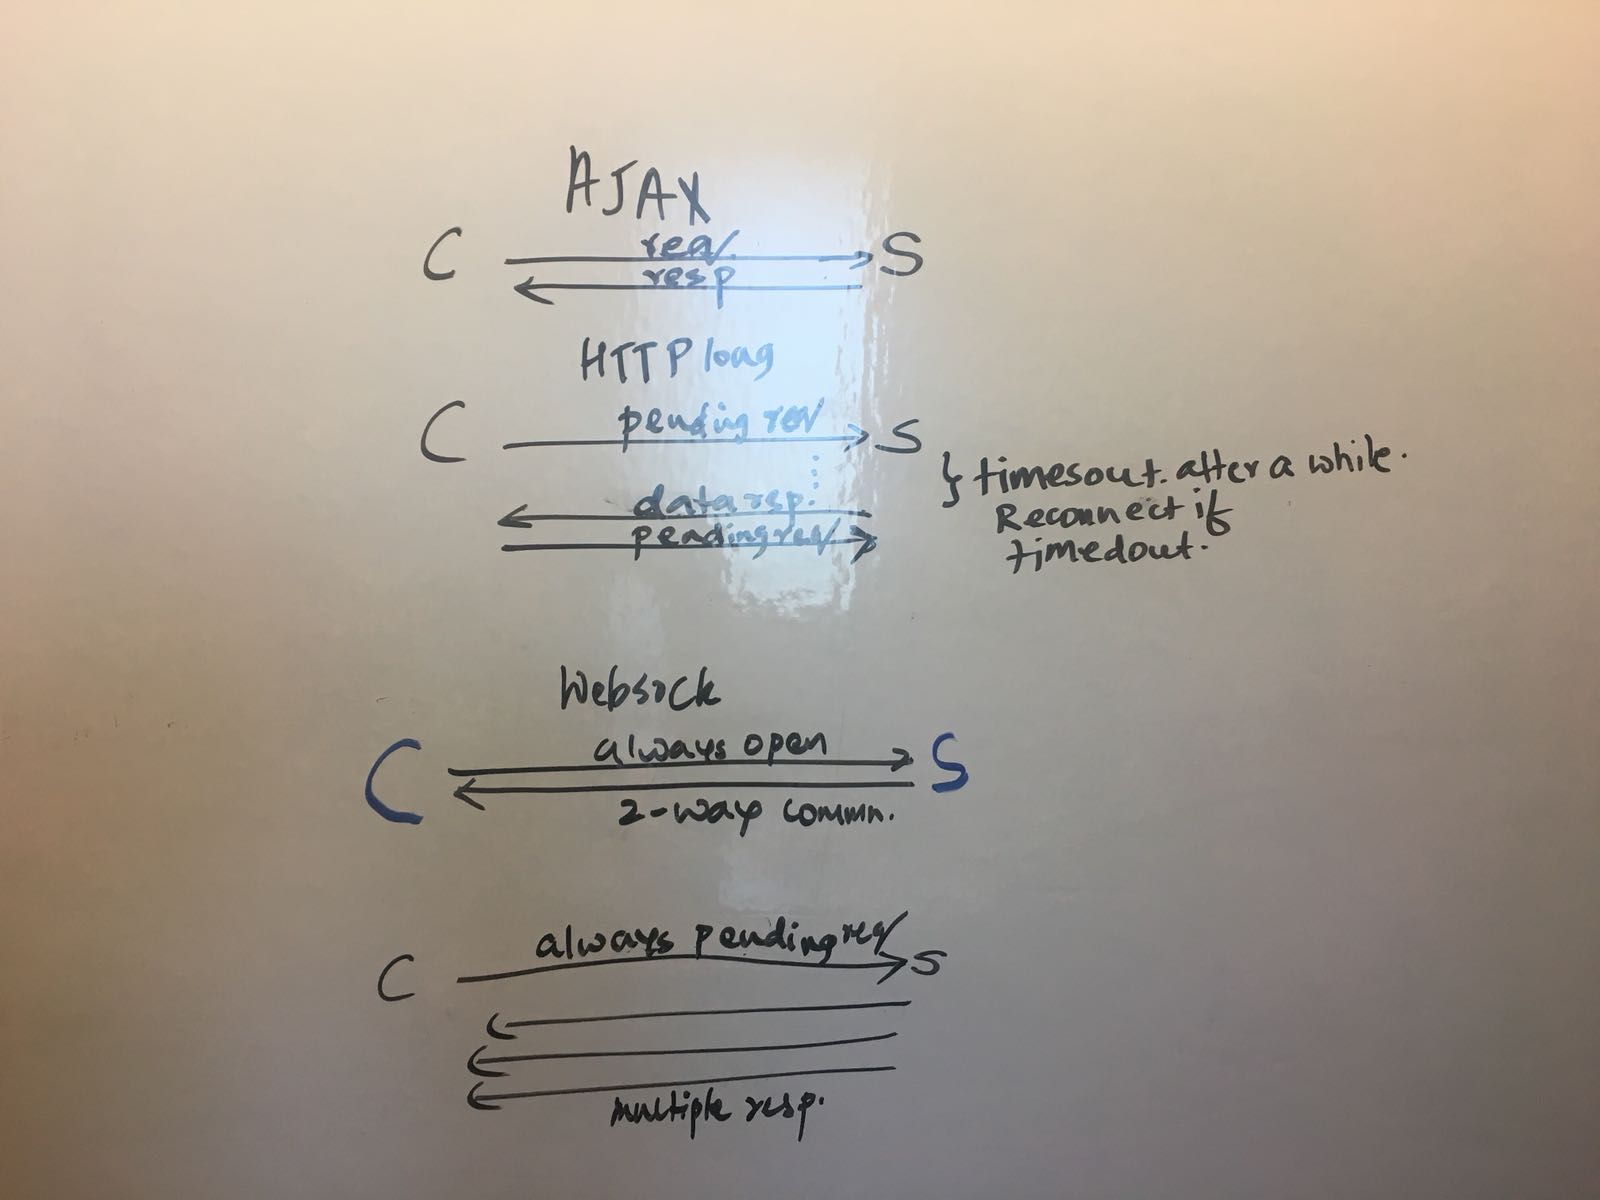 AJAX
C req. S
resp
HTTP long
C pending req S
data rsp.
pending req
} timesout. after a while.
Reconnect if
timedout.
Websock
C always open S
2-way commn.
C always pending req S
multiple resp.